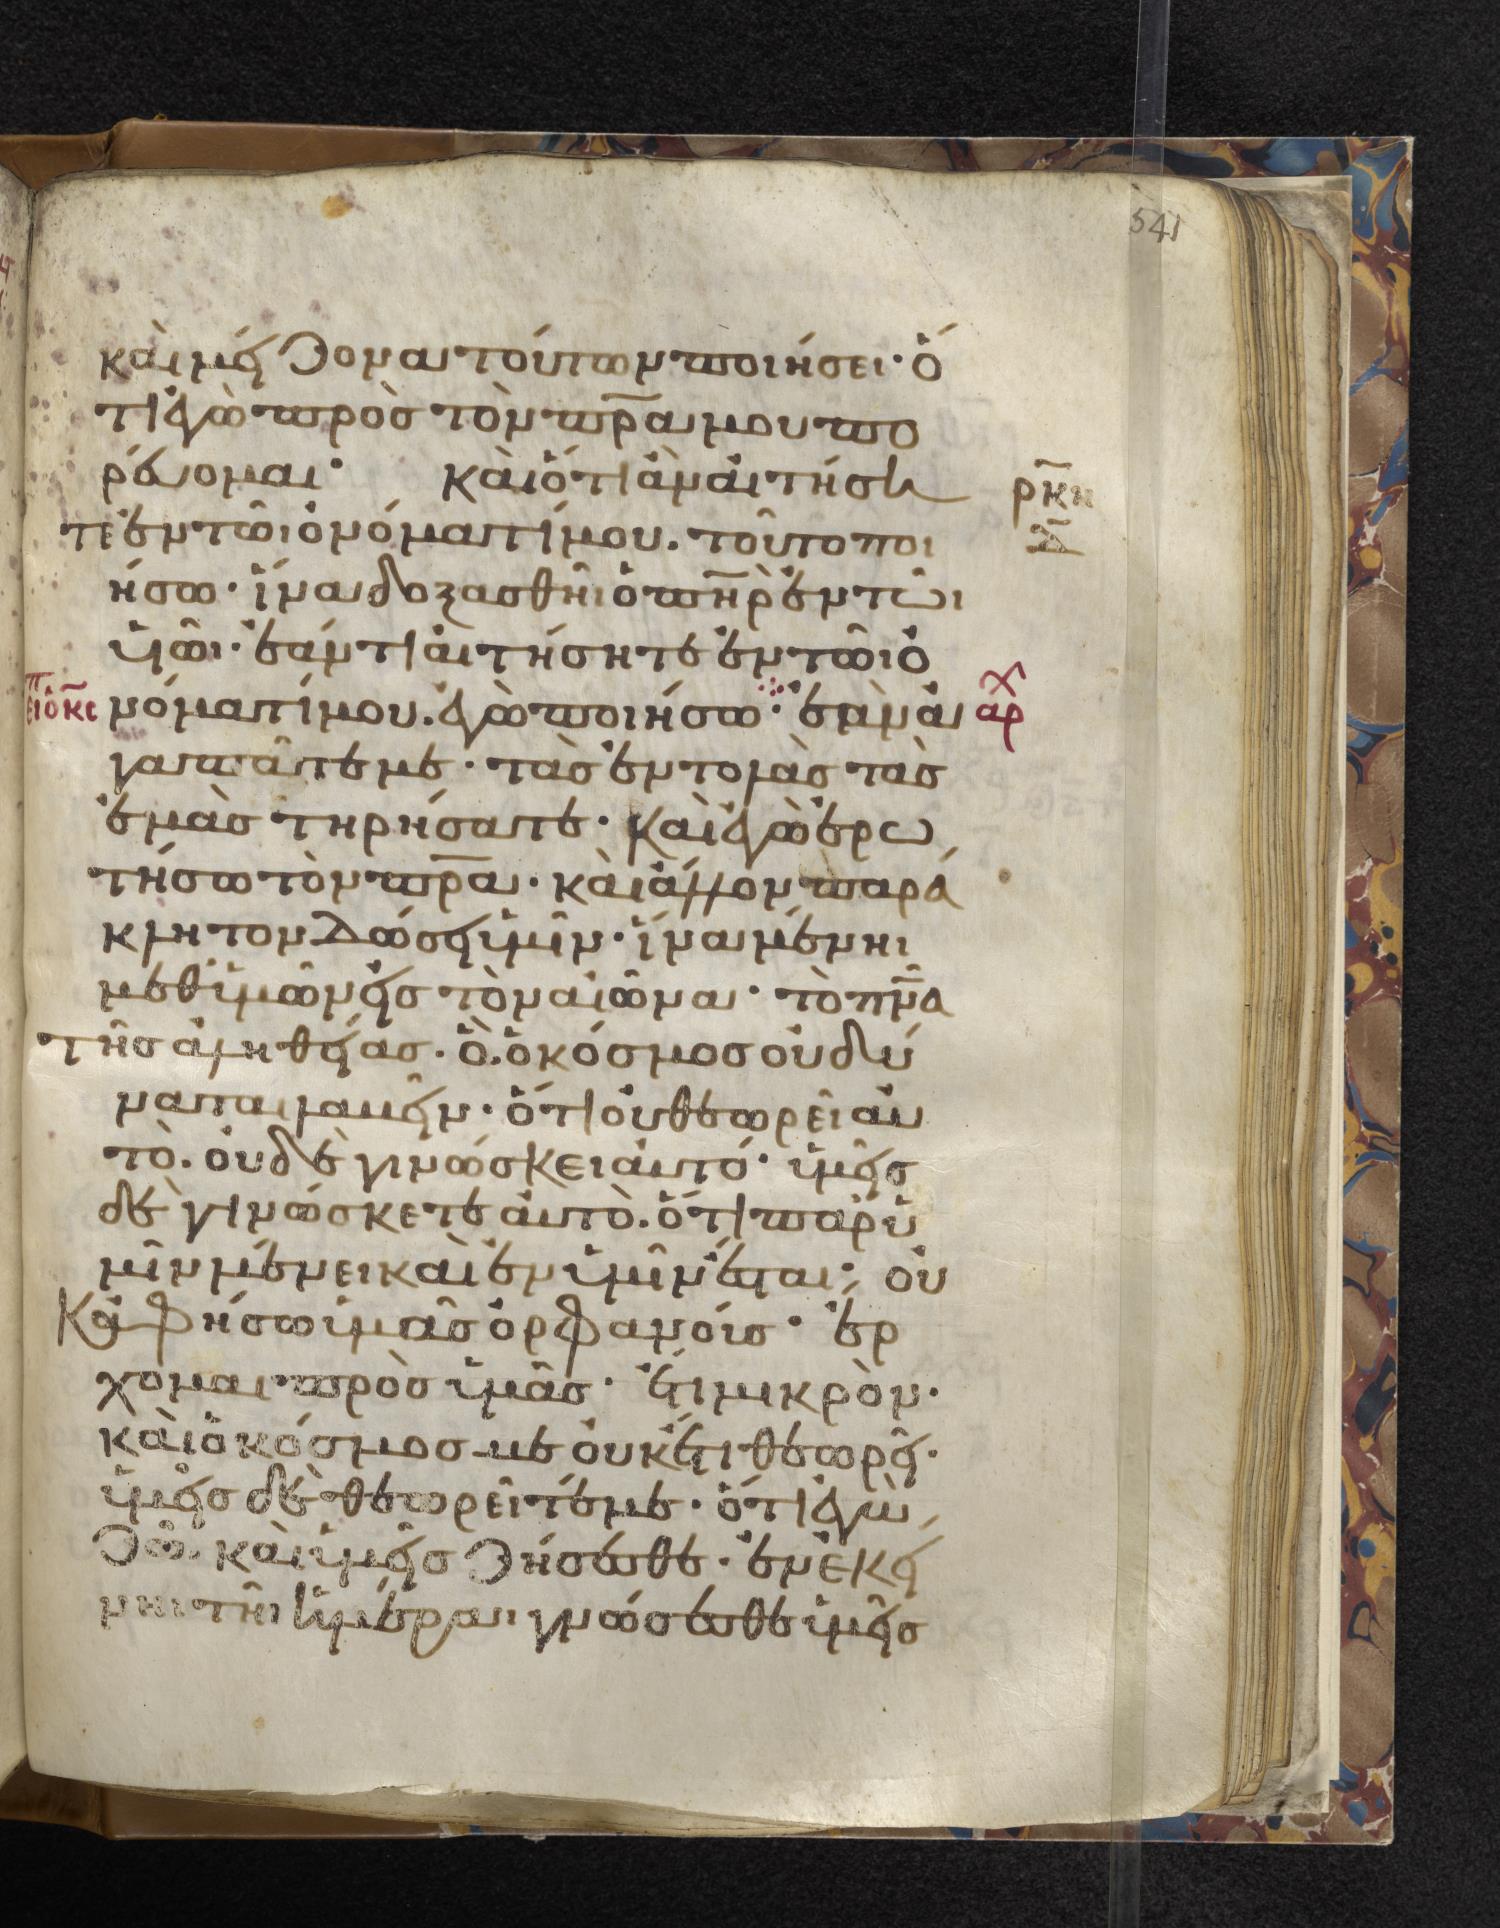 541
καὶ μείζονα τούτων ποιήσει· ὅ
τι ἐγὼ πρὸς τὸν πρ̅α μου πο
ρεύομαι· καὶ ὅτι ἂν αἰτήση
τε ἐν τῶι ὀνόματί μου. τοῦτο ποι
ήσω· ἵνα δοξασθῆι ὁ πη̅ρ ἐν τῶι
ὑιῶι· ἐάν τι αἰτήσητε ἐν τῶι ὀ
νόματί μου. ἐγὼ ποιήσω· ἐὰν ἀ
γαπᾶτε με· τὰς ἐντολὰς τὰς
ἐμὰς τηρήσατε· καὶ ἐγὼ ἐρω
τήσω τὸν πρ̅α· καὶ ἄλλον παρά
κλητον δώσει ὑμῖν· ἵνα μένηι
μεθ ὑμῶν εἰς τὸν αἰῶνα· τὸ πν̅α
τῆς ἀληθείας. ὃ. ὁ κόσμος οὐ δύ
ναται λαβεῖν· ὅτι οὐ θεωρεῖ αὐ
τὸ. οὐδὲ γινώσκει αὐτό· ὑμεῖς
δὲ γινώσκετε αὐτὸ. ὅτι παρ ὑ
μῖν μένει καὶ ἐν ὑμῖν ἔσται· οὐ
κ ἀφήσω ὑμᾶς ὀρφανούς· ἔρ
χομαι πρὸς ὑμᾶς· ἔτι μικρὸν·
καὶ ὁ κόσμος με οὐκ έτι θεωρεῖ·
ὑμεῖς δὲ θεωρεῖτέ με· ὅτι ἐγὼ
ζῶ. καὶ ὑμεῖς ζήσεσθε· ἐν ἐκεί
νηι τῆι ἡμέραι γνώσεσθε ὑμεῖς
ρκ̅η
αρ
χ